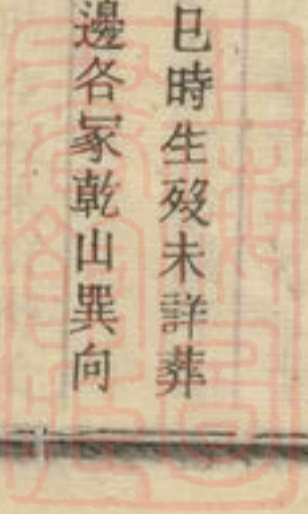 巳時生歿未詳葬
邊各冢乾山巽向